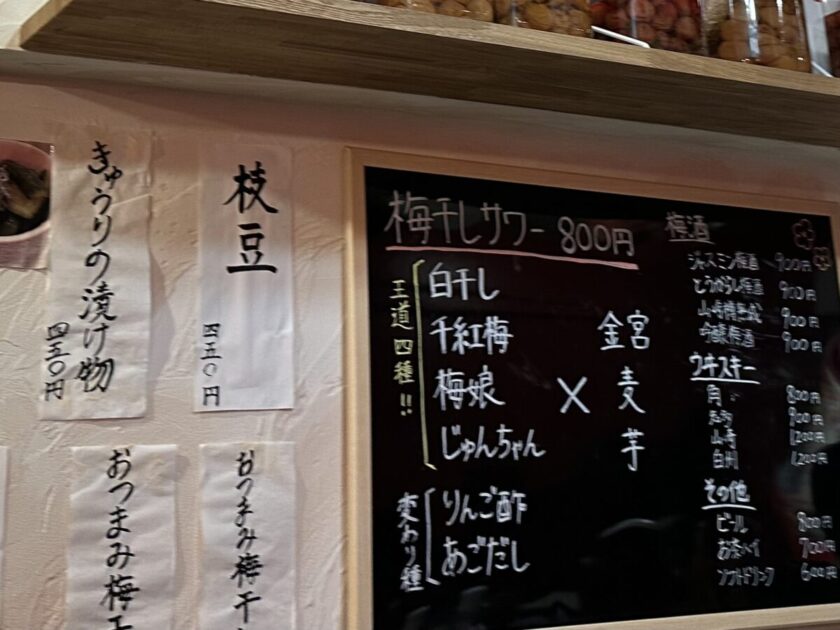 きゅうりの漬け物
四五〇円
枝豆
四五〇円
おつまみ梅干
おつまみ梅干
梅干しサワー 800円
王道四種!!
白干し
千紅梅
梅娘
じゅんちゃん
×
金宮
麦
芋
変わり種
りんご酢
あごだし
梅酒
ジャスミン梅酒 900円
とうがらし梅酒 900円
900円
900円
ウヰスキー
角 800円
900円
山崎 1,200円
白州 1,200円
その他
ビール 800円
お茶ハイ 700円
ソフトドリンク 600円